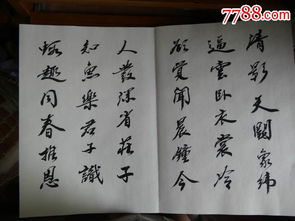 7788.com
清影天闕象緯
逼雲臥衣裳冷
欲覺聞晨鐘令
人發深省莊子
知魚樂君子識
趣同春推恩